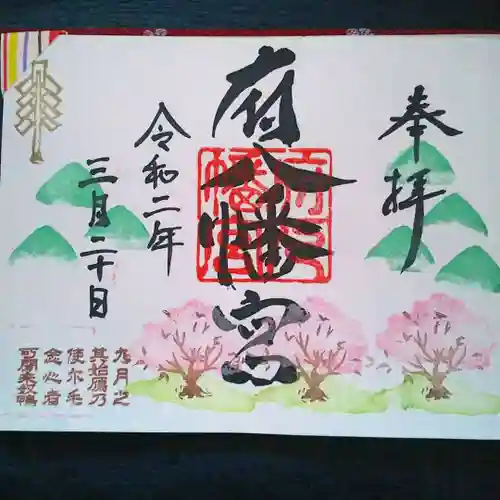 奉拝
府八幡宮
令和二年
三月二十日
九月之
其始鴈乃
使尓毛
念心者
可聞来奴鴨